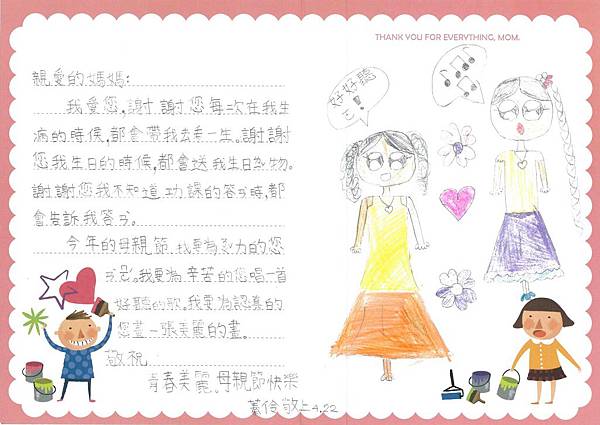 THANK YOU FOR EVERYTHING, MOM.
親愛的媽媽:
我愛您,謝謝您每次在我生
病的時候,都會帶我去看一生。謝謝
您我生日的時候,都會送我生日禮物。
謝謝您我不知道功課的答時,都
會告訴我答。
今年的母親節,我要為努力的您
我要為辛苦的您唱一首
好聽的歌。我要為認真的
您畫一張美麗的畫。
敬祝
青春美麗、母親節快樂
敬上4.22
好好聽
ㄛ!